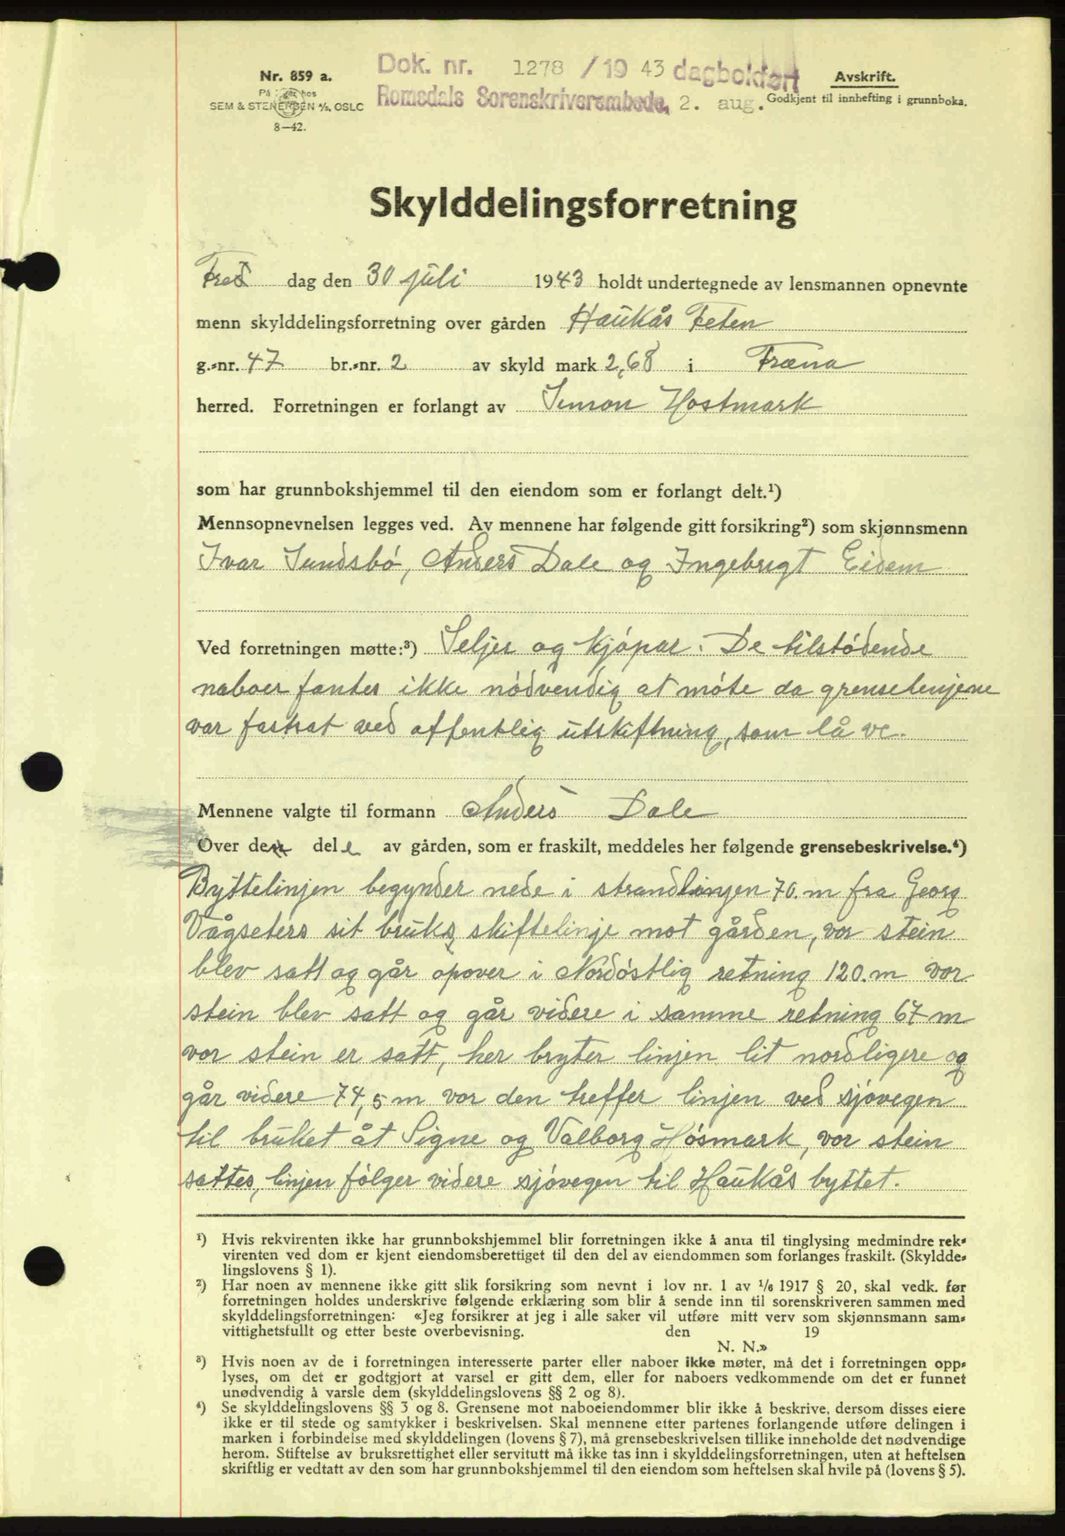 Nr. 859 a.
SEM & STENERSEN A/S, OSLO
8—42.
Dok. nr. 1278 /19 43 dagbokført
Romsdals Sorenskriverembede, 2. aug.
Avskrift.
Godkjent til innhefting i grunnboka.
Skylddelingsforretning
Fre dag den 30 juli 1943 holdt undertegnede av lensmannen opnevnte
menn skylddelingsforretning over gården Haukås Feten
g.-nr. 47 br.-nr. 2 av skyld mark 2,68 i Fræna
herred. Forretningen er forlangt av Simon Hostmark
som har grunnbokshjemmel til den eiendom som er forlangt delt.¹)
Mennsopnevnelsen legges ved. Av mennene har følgende gitt forsikring²) som skjønnsmenn
Ivar Sundsbö, Anders Dale og Ingebrigt Eidem
Ved forretningen møtte:³) Seljer og kjöpar. De tilstödende
naboer fantes ikke nödvendig at möte da grenselinjene
var fastsat ved offentlig utskiftning, som lå ve.
Mennene valgte til formann Anders Dale
Over de del e av gården, som er fraskilt, meddeles her følgende grensebeskrivelse.⁴)
Byttelinjen begynder nede i strandlinjen 70. m fra Georg
Vågseters sit bruks skiftelinje mot gården, vor stein
blev satt og går opover i Nordöstlig retning 120. m vor
stein blev satt og går videre i samme retning 67 m
vor stein er satt, her bryter linjen lit nordligere og
går videre 74,5 m vor den treffer linjen ved sjövegen
til bruket åt Signe og Valborg Hösmark, vor stein
sattes, linjen fölger videre sjövegen til Haukås byttet.
¹) Hvis rekvirenten ikke har grunnbokshjemmel blir forretningen ikke å anta til tinglysing medmindre rek-
virenten ved dom er kjent eiendomsberettiget til den del av eiendommen som forlanges fraskilt. (Skyldde-
lingslovens § 1).
²) Har noen av mennene ikke gitt slik forsikring som nevnt i lov nr. 1 av ¹/₆ 1917 § 20, skal vedk. før
forretningen holdes underskrive følgende erklæring som blir å sende inn til sorenskriveren sammen med
skylddelingsforretningen: «Jeg forsikrer at jeg i alle saker vil utføre mitt verv som skjønnsmann sam-
vittighetsfullt og etter beste overbevisning. den 19
N. N.»
³) Hvis noen av de i forretningen interesserte parter eller naboer ikke møter, må det i forretningen opp-
lyses, om det er godtgjort at varsel er gitt dem, eller for naboers vedkommende om det er funnet
unødvendig å varsle dem (skylddelingslovens §§ 2 og 8).
⁴) Se skylddelingslovens §§ 3 og 8. Grensene mot naboeiendommer blir ikke å beskrive, dersom disses eiere
ikke er til stede og samtykker i beskrivelsen. Skal mennene etter partenes forlangende utføre delingen i
marken i forbindelse med skylddelingen (lovens § 7), må grensebeskrivelsen tillike inneholde det nødvendige
herom. Stiftelse av bruksrettighet eller servitutt må ikke tas inn i skylddelingsforretningen, uten at heftelsen
skriftlig er vedtatt av den som har grunnbokshjemmel til den eiendom som heftelsen skal hvile på (lovens § 5).